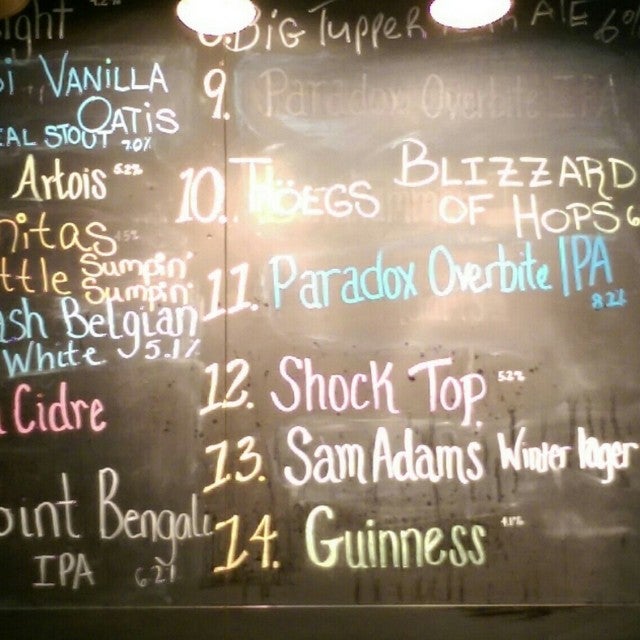 ight
i VANILLA
OATIS
EAL STOUT 7.0%
Artois 5.2%
nitas
ttle Sumpin'
Sumpin'
ash Belgian
White 5.1%
Cidre
oint Bengali
IPA
8. BIG TUPPER ALE 6%
9. Paradox Overbite IPA
10. THÖEGS BLIZZARD
OF HOPS 6
11. Paradox Overbite IPA
8.2%
12. Shock Top 5.2%
13. Sam Adams Winter lager
14. Guinness